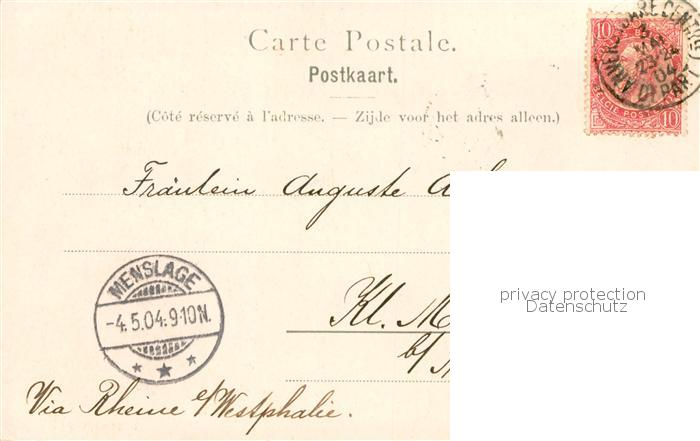 Carte Postale.
Postkaart.
(Côté réservé à l'adresse. — Zijde voor het adres alleen.)
10
BELGIE POSTERIJEN 10
ANVERS (GARE CENTRALE)
04
DEPART
Fräulein Auguste
MENSLAGE
-4.5.04.9-10N.
Kl. M
b/
privacy protection
Datenschutz
Via Rheine e/Westphalie.